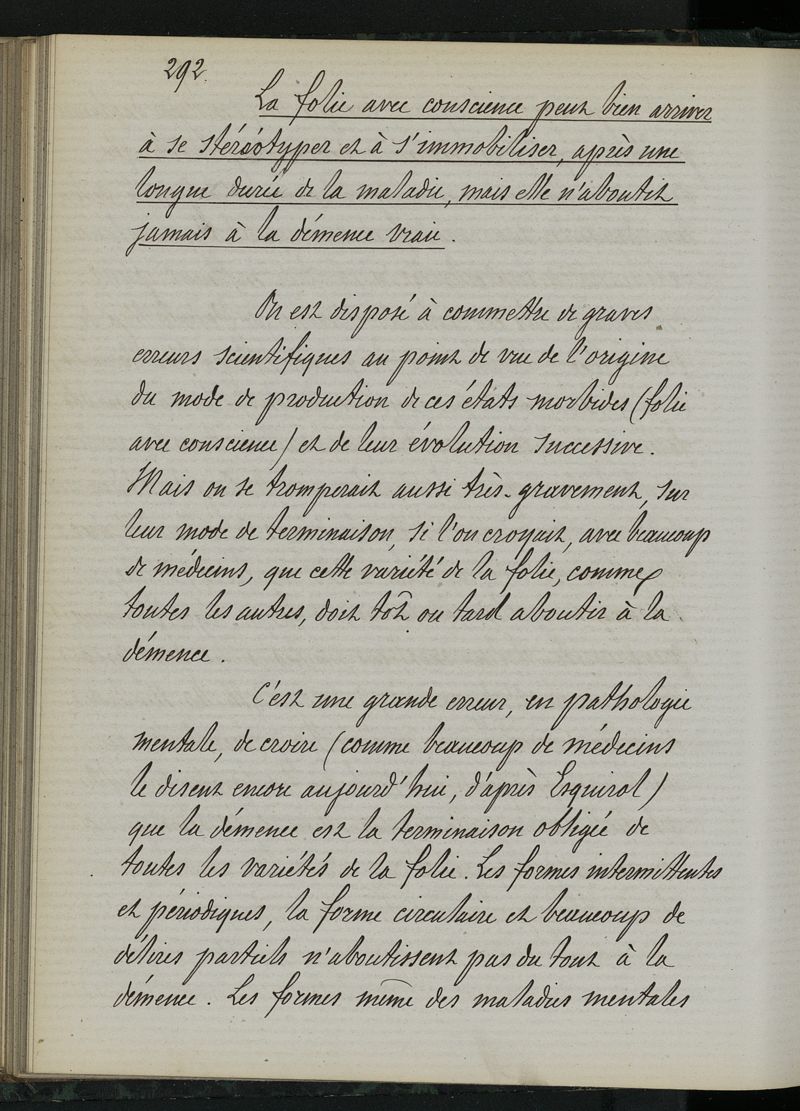 292.
La folie avec conscience peut bien arriver
à se stéréotyper et à s'immobiliser, après une
longue durée de la maladie, mais elle n'aboutit
jamais à la démence vraie.
On est disposé à commettre de graves
erreurs scientifiques au point de vue de l'origine
du mode de production de ces états morbides (folie
avec conscience) et de leur évolution successive.
Mais on se tromperait aussi très-gravement, sur
leur mode de terminaison, si l'on croyait, avec beaucoup
de médecins, que cette variété de la folie, comme
toutes les autres, doit tôt ou tard aboutir à la
démence.
C'est une grande erreur, en pathologie
mentale, de croire (comme beaucoup de médecins
le disent encore aujourd'hui, d'après Esquirol)
que la démence est la terminaison obligée de
toutes les variétés de la folie. Les formes intermittentes
et périodiques, la forme circulaire et beaucoup de
délires partiels n'aboutissent pas du tout à la
démence. Les formes même des maladies mentales